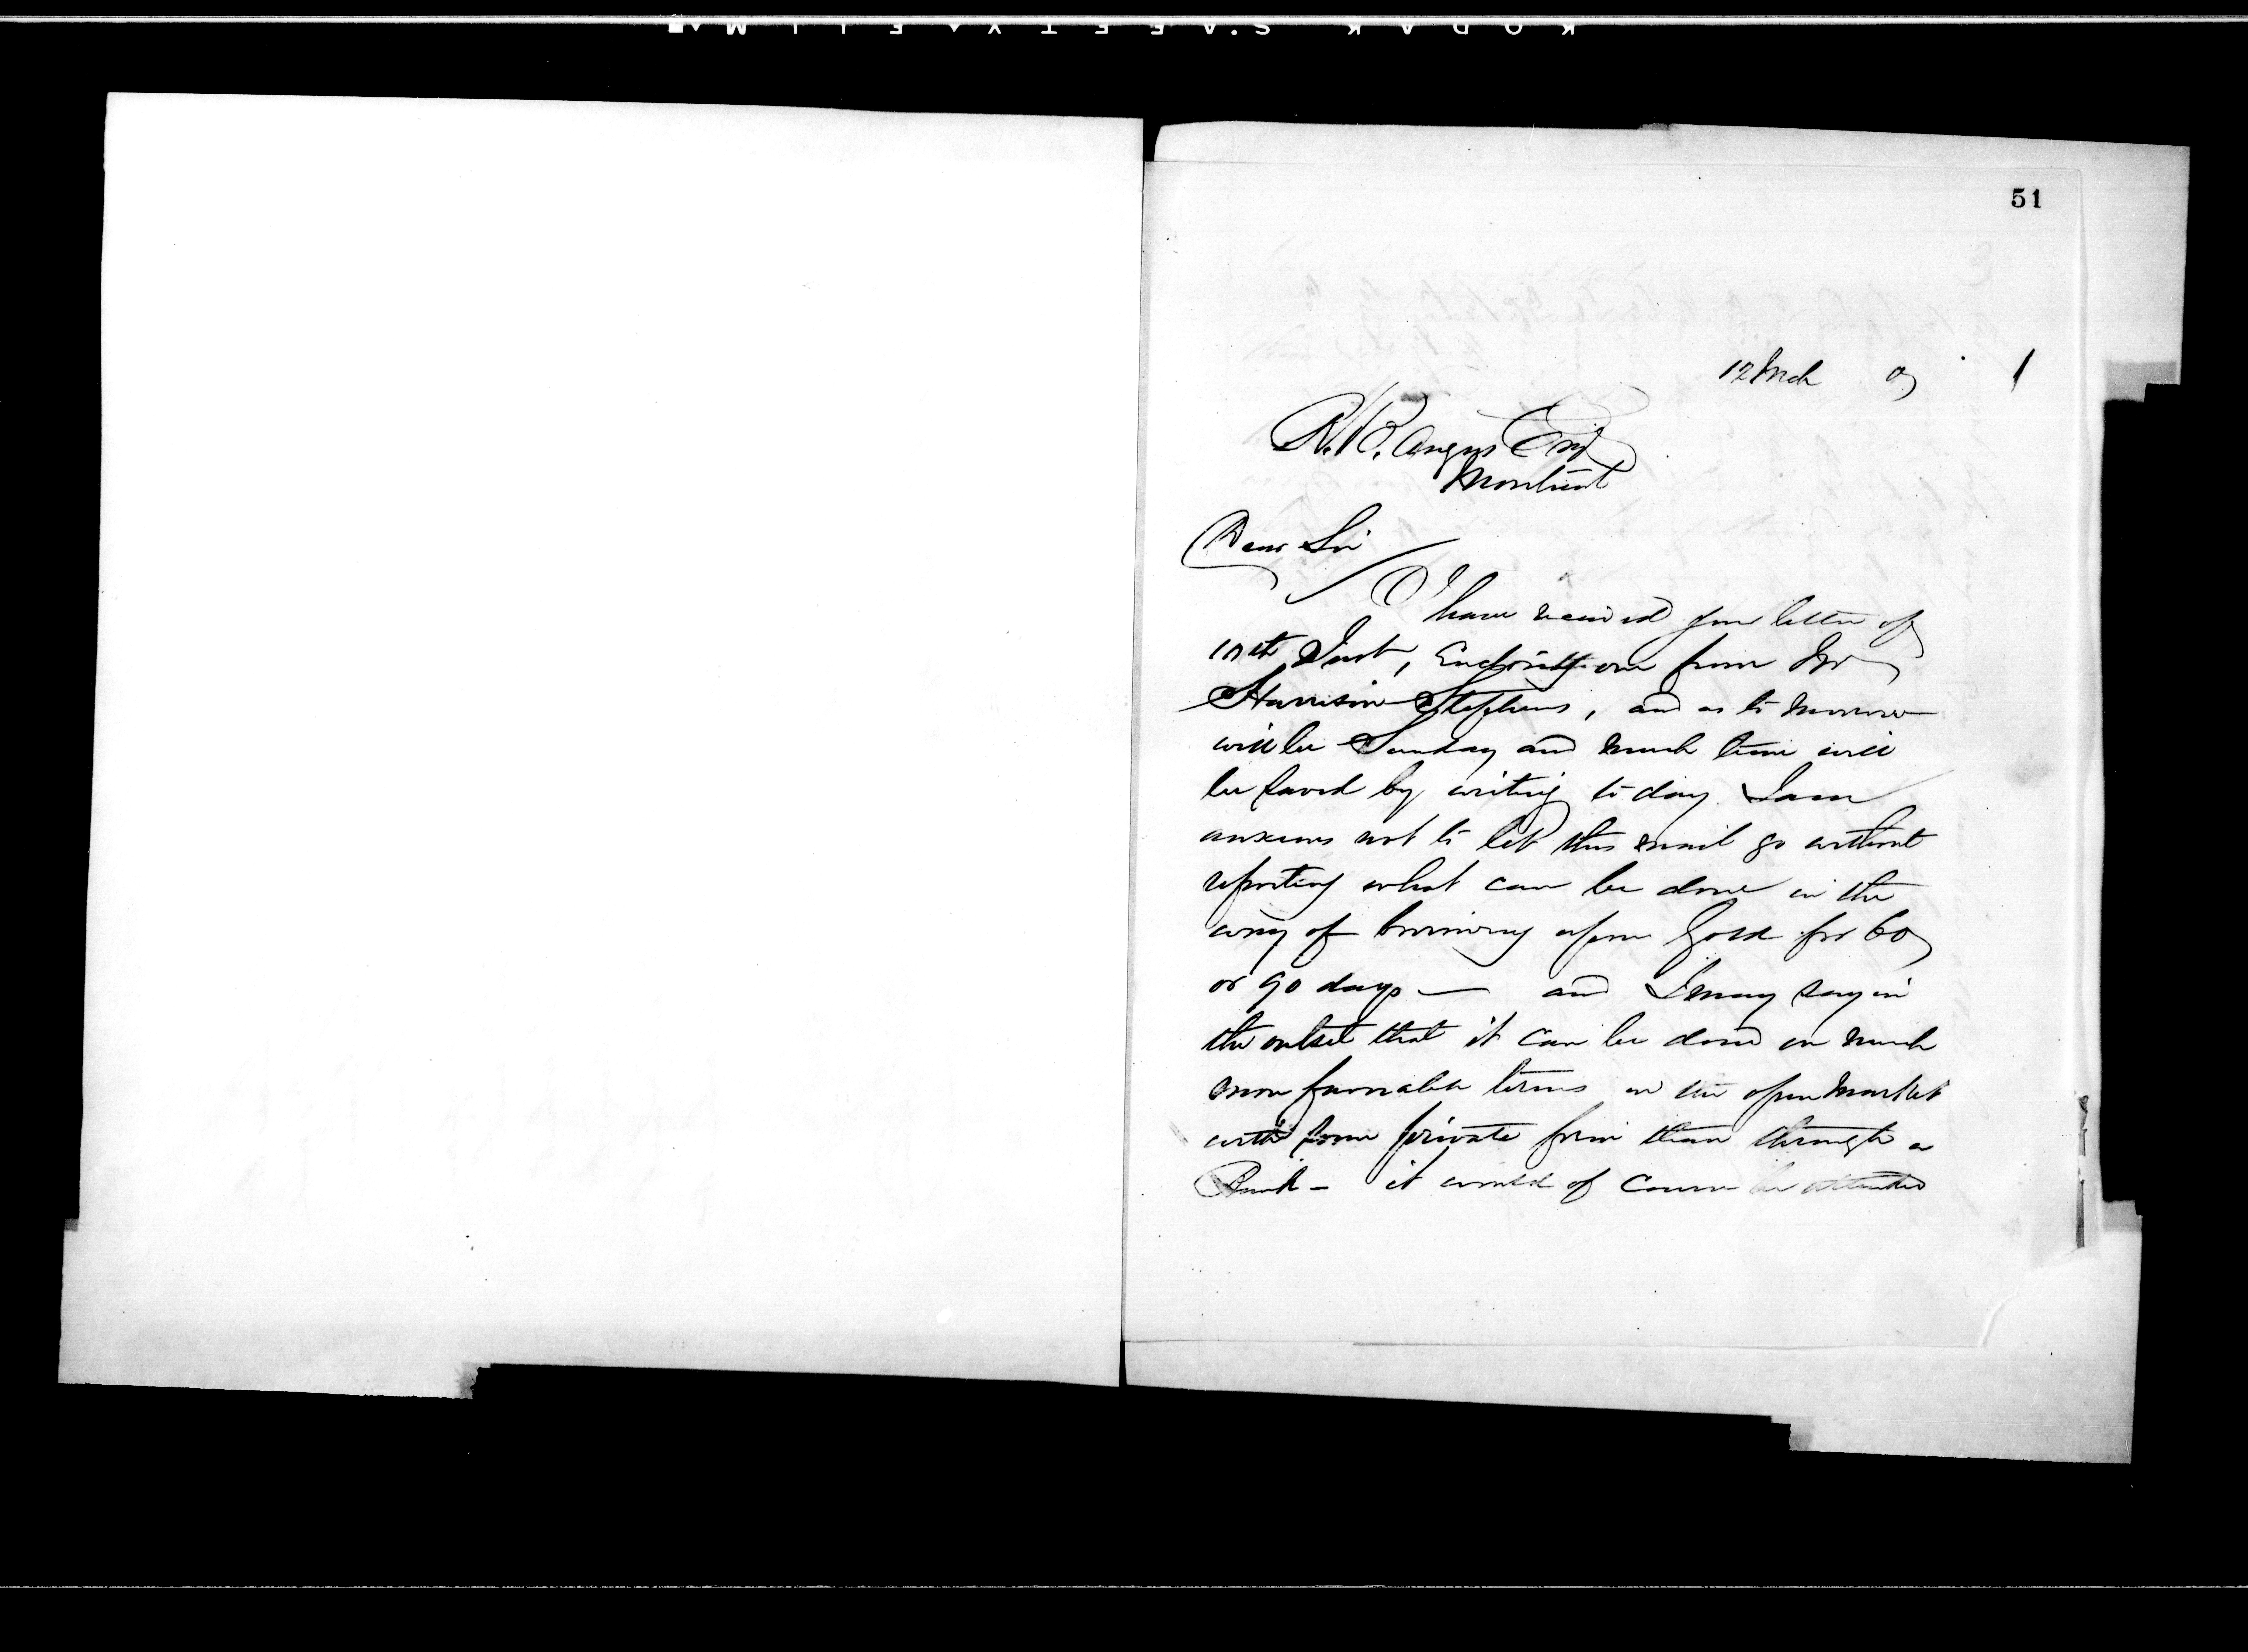 KODAK SAFETY FILM
51
12 Mch
R. B. Angus Esq
Montreal
Dear Sir
I have received your letter of
10th Inst, Enclosing one from Mr
Harrison Stephens, and as to morrow
will be Sunday and much time will
be saved by writing to day I am
anxious not to let this mail go without
reporting what can be done in the
way of borrowing upon Gold for 60
or 90 days — and I may say in
the outset that it can be done on much
more favorable terms in the open Market
with some private firm than through a
Bank - it would of course be attended